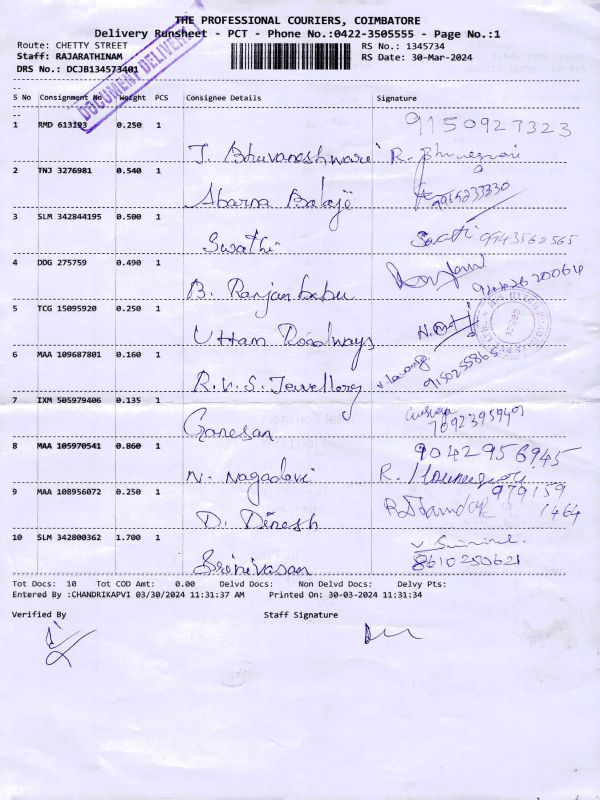 THE PROFESSIONAL COURIERS, COIMBATORE
Delivery Runsheet - PCT - Phone No.:0422-3505555 - Page No.:1
Route: CHETTY STREET RS No.: 1345734
Staff: RAJARATHINAM RS Date: 30-Mar-2024
DRS No.: DCJB134573401
DOCUMENT DELIVERY
S No Consignment No Weight PCS Consignee Details Signature
1 RMD 613193 0.250 1 9150927323
J. Bhuvaneshwari R.
2 TNJ 3276981 0.540 1
Abarna Balaje 9965233330
3 SLM 342844195 0.500 1
Swathi Swathi 9943562565
4 DDG 275759 0.490 1
B. Ranjan babu
5 TCG 15095920 0.250 1
Uttam Roadways
6 MAA 109687801 0.160 1
R.V.S. Jewellery 9150255865
7 IXM 505979406 0.135 1
Ganesan 7092395949
8 MAA 105970541 0.860 1 9042956945
N. Nagadevi R.
9 MAA 108956072 0.250 1 979159
D. Dinesh 1464
10 SLM 342800362 1.700 1
Srinivasan 8610250621
Tot Docs: 10 Tot COD Amt: 0.00 Delvd Docs: Non Delvd Docs: Delvy Pts:
Entered By :CHANDRIKAPVI 03/30/2024 11:31:37 AM Printed On: 30-03-2024 11:31:34
Verified By Staff Signature